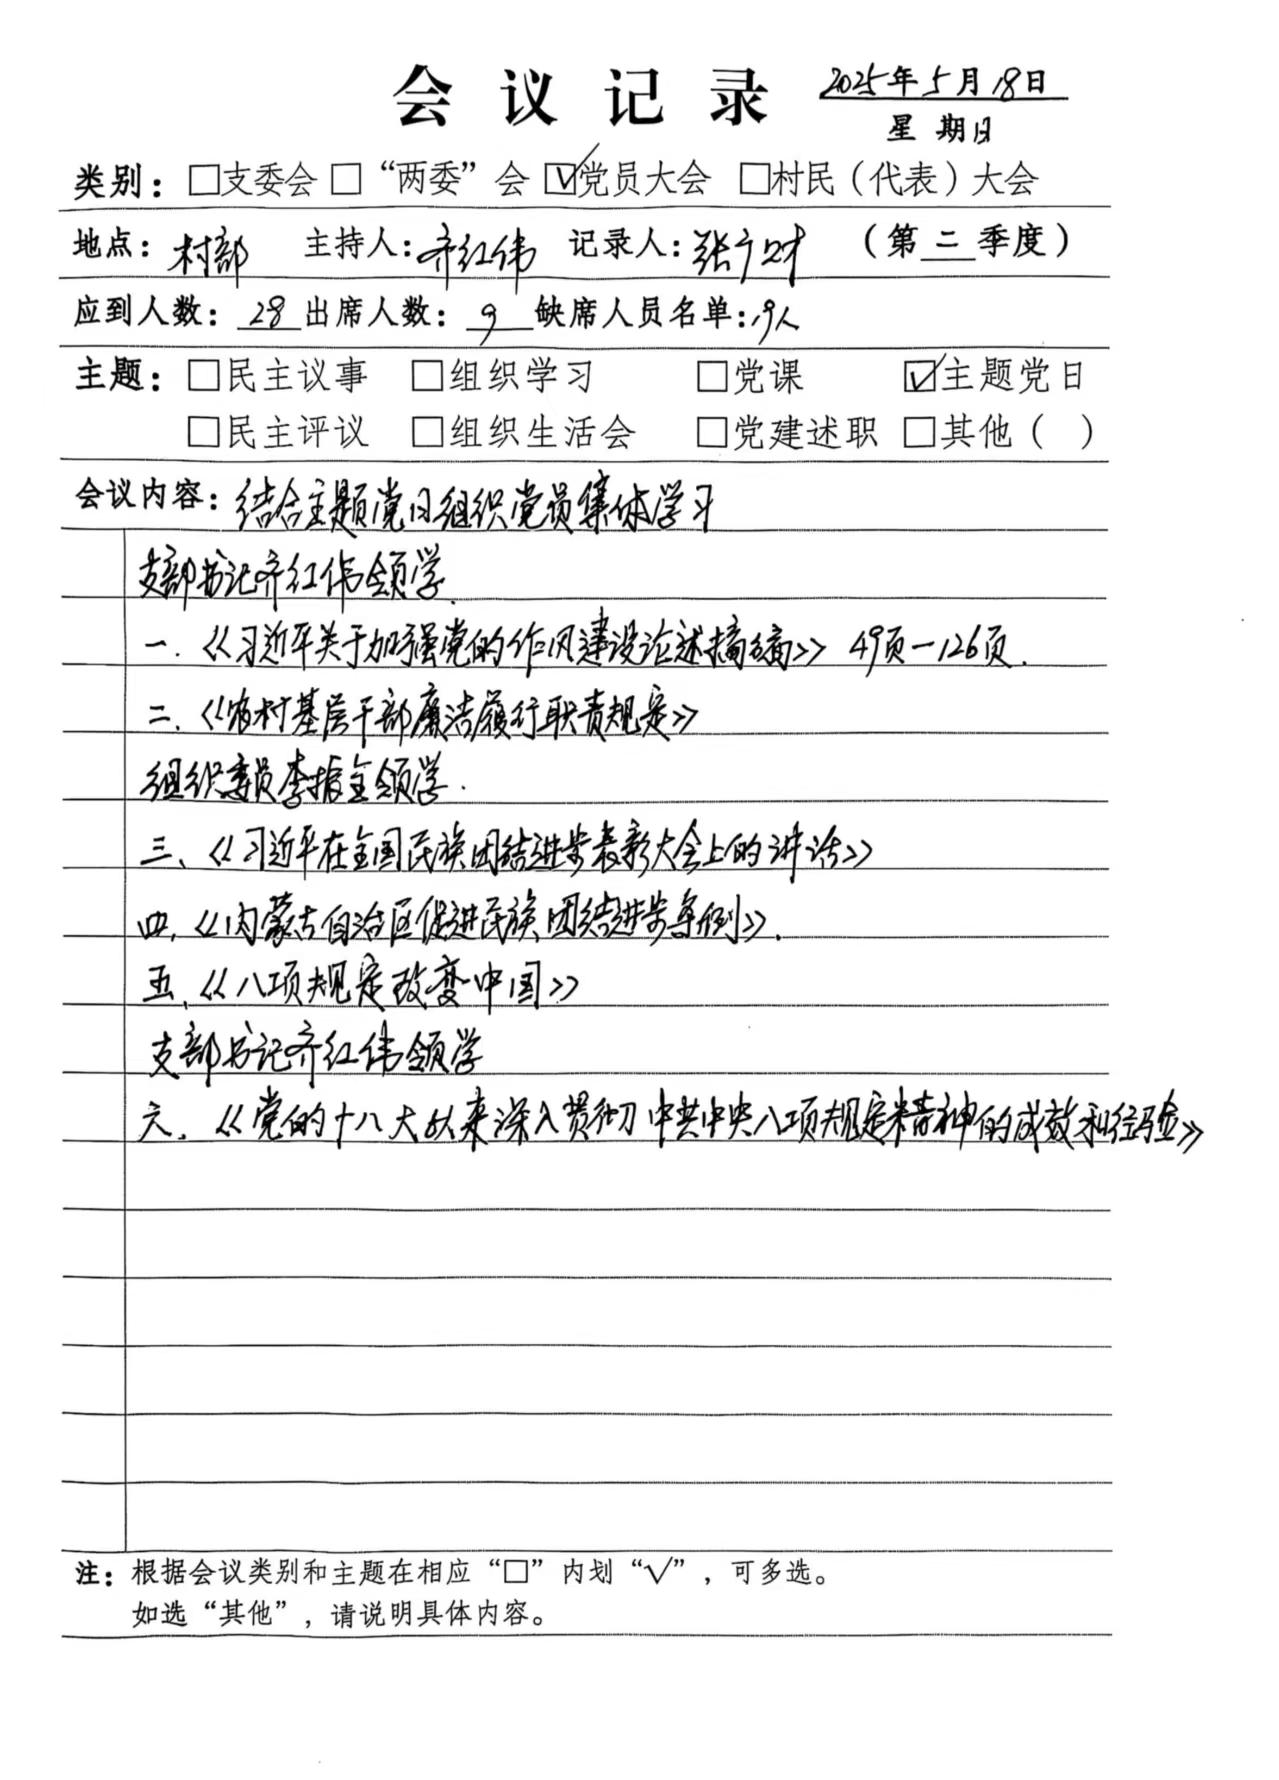 会议记录 2025年5月18日
星期日
类别：□支委会 □“两委”会 ☑党员大会 □村民（代表）大会
地点：村部 主持人：齐红伟 记录人：张广财 （第二季度）
应到人数：28 出席人数：9 缺席人员名单：19人
主题：□民主议事 □组织学习 □党课 ☑主题党日
□民主评议 □组织生活会 □党建述职 □其他（ ）
会议内容：结合主题党日组织党员集体学习
支部书记齐红伟领学.
一.《习近平关于加强党的作风建设论述摘编》49页—126页.
二.《农村基层干部廉洁履行职责规定》
组织委员李振全领学.
三、《习近平在全国民族团结进步表彰大会上的讲话》
四.《内蒙古自治区促进民族团结进步条例》.
五.《八项规定改变中国》
支部书记齐红伟领学
六.《党的十八大以来深入贯彻中共中央八项规定精神的成效和经验》
注：根据会议类别和主题在相应“□”内划“√”，可多选。
如选“其他”，请说明具体内容。